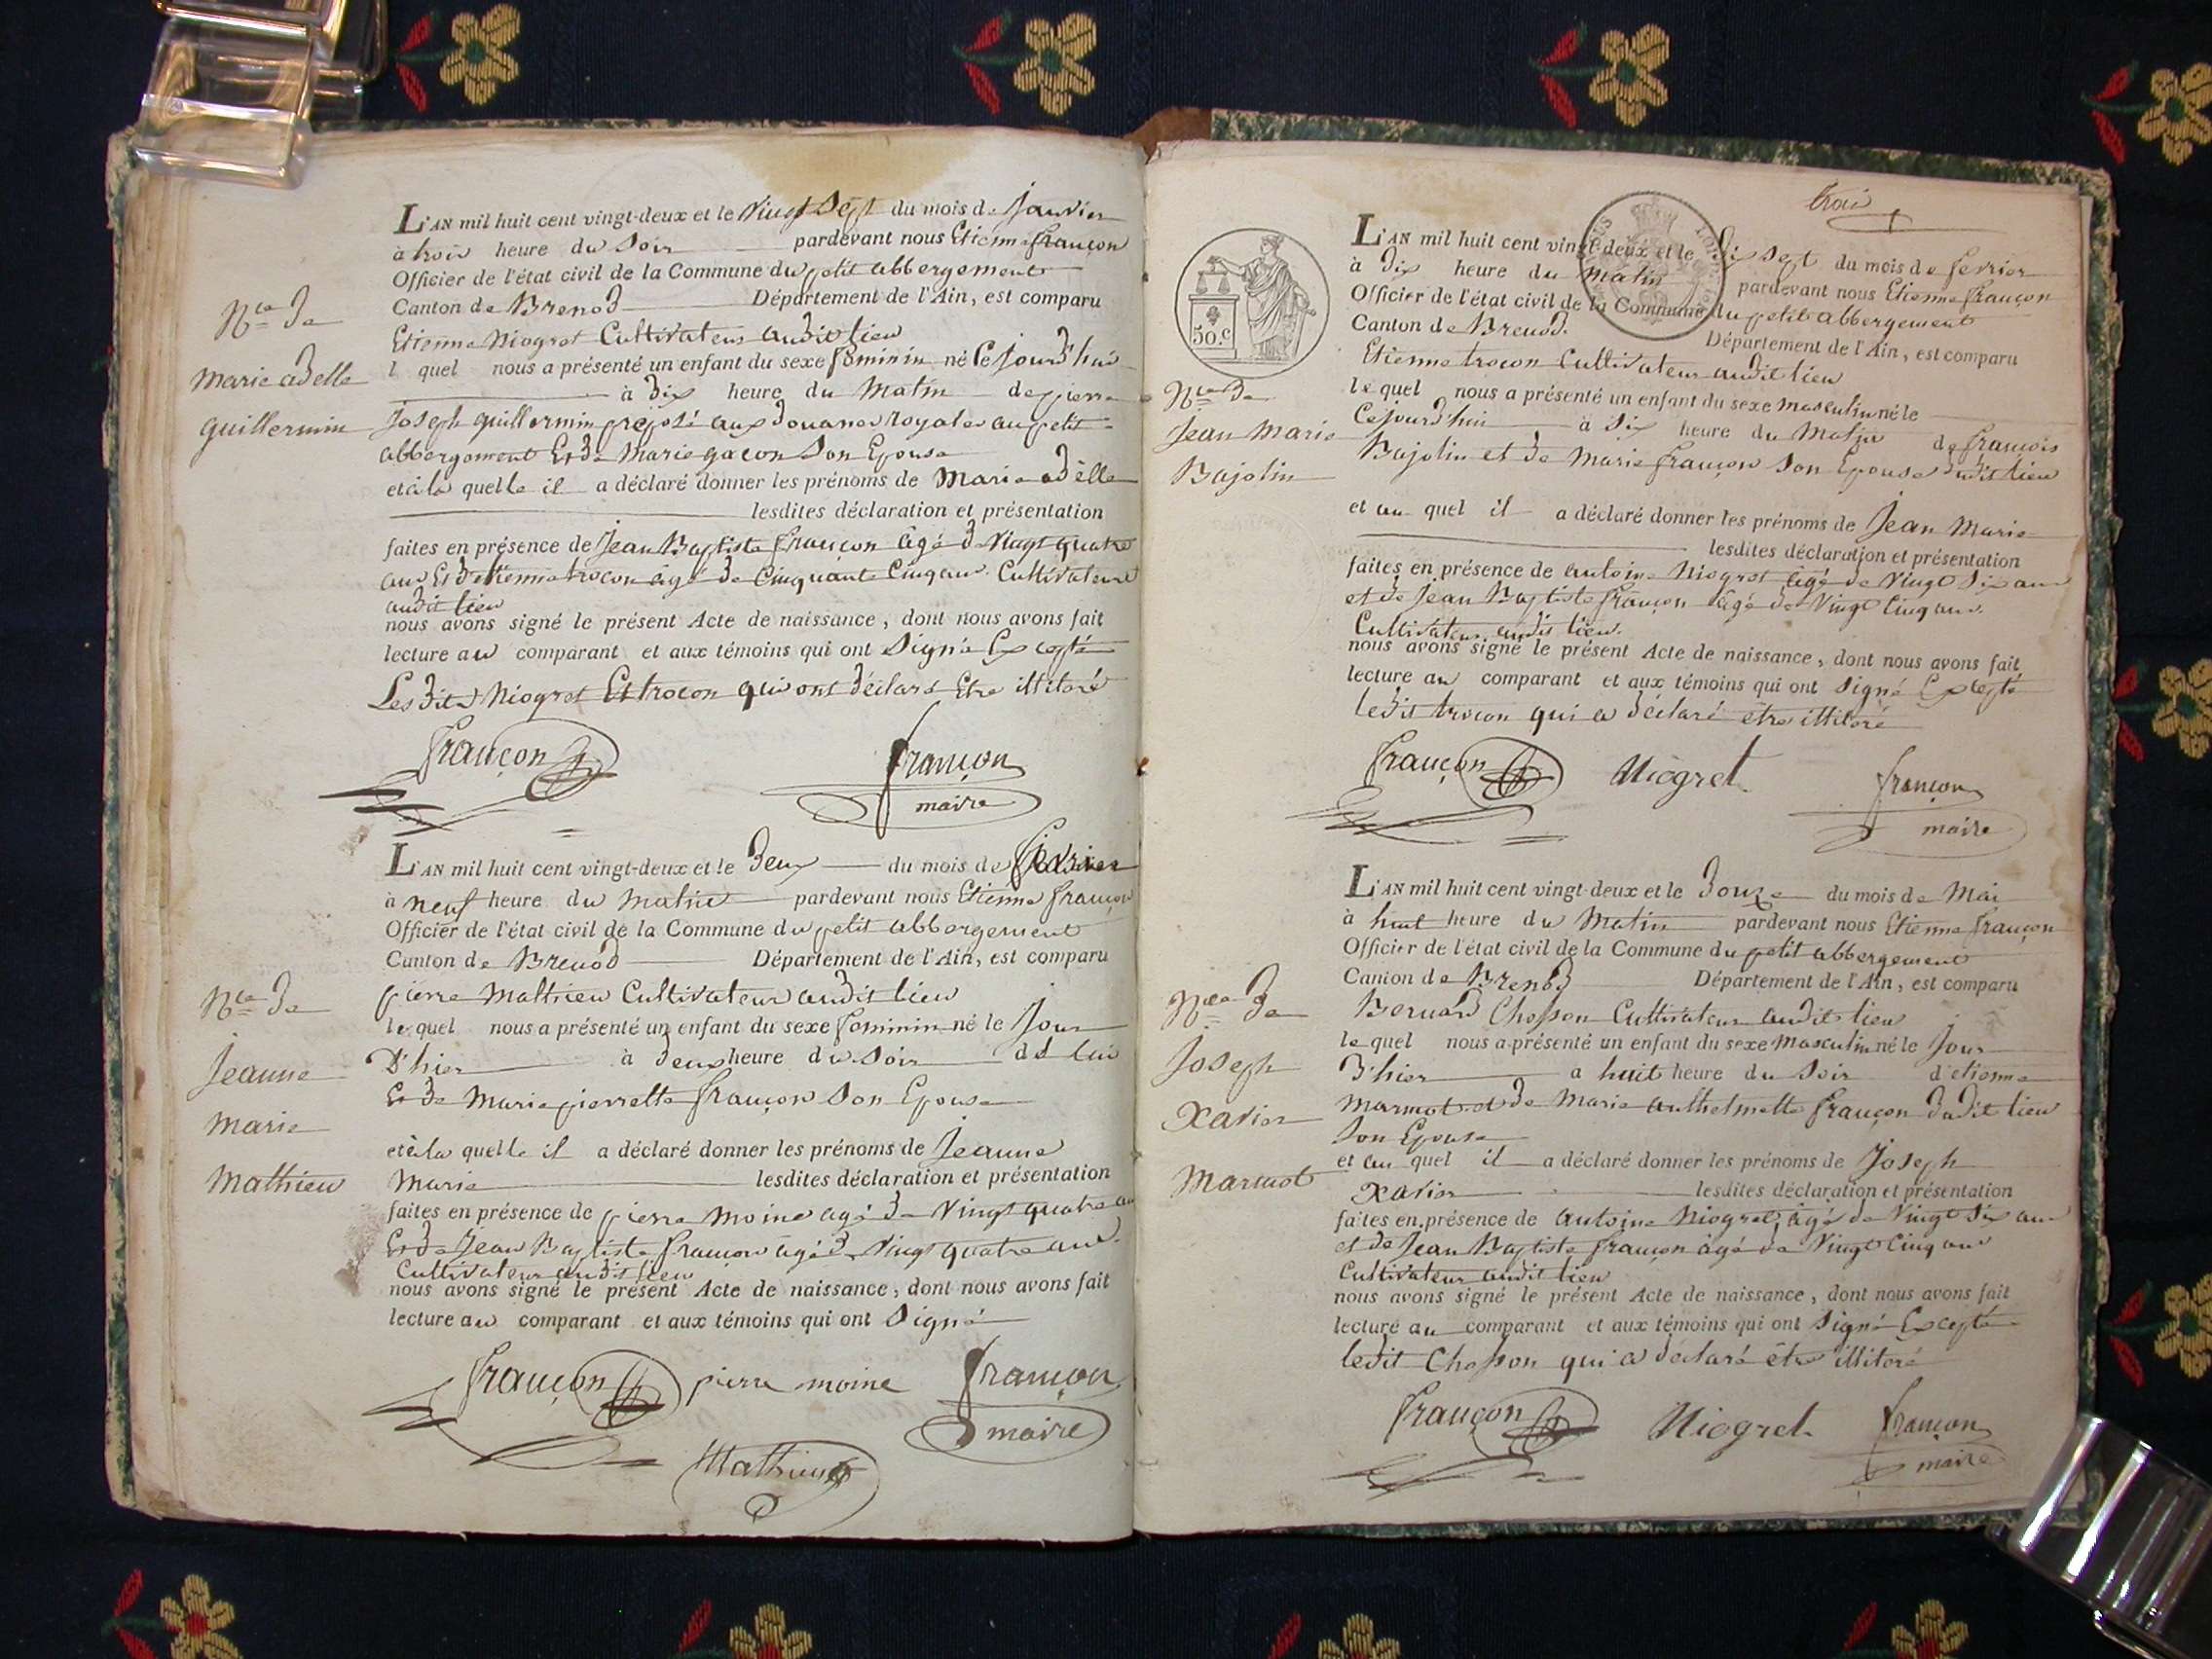 L'AN mil huit cent vingt-deux et le vingt sept du mois de janvier
à trois heure du soir pardevant nous Etienne françon
Officier de l'état civil de la Commune du petit abbergement
Canton de Brenod Département de l'Ain, est comparu
Etienne Niogret Cultivateur audit lieu
N.ce de
l quel nous a présenté un enfant du sexe féminin né Cejourd'hui
marie adelle
à dix heure du Matin de pierre
guillermin
Joseph guillermin préposé aux douanes royales au petit
abbergement Et de Marie gacon Son Epouse
et à la quelle il a déclaré donner les prénoms de Marie adèlle
lesdites déclaration et présentation
faites en présence de Jean Baptiste françon agé de vingt quatre
ans Et d'etienne trocon agé de Cinquante Cinq ans Cultivateurs
audit lieu
nous avons signé le présent Acte de naissance, dont nous avons fait
lecture au comparant et aux témoins qui ont Signé Excepté
Les dits Niogret Et trocon qui ont déclaré Etre illitoré
françon françon
maire
L'AN mil huit cent vingt-deux et le deux du mois de fevrier
à neuf heure du matin pardevant nous Etienne françon
Officier de l'état civil de la Commune du petit abbergement
Canton de Brenod Département de l'Ain, est comparu
N.ce de
pierre Mathieu Cultivateur audit lieu
le quel nous a présenté un enfant du sexe feminin né le Jour
Jeanne
D'hier à deux heure du Soir de lui
marie
Et de Marie pierrette françon Son Epouse
et à la quelle il a déclaré donner les prénoms de Jeanne
mathieu
Marie lesdites déclaration et présentation
faites en présence de pierre moine agé de vingt quatre an
Et de Jean Baptiste françon âgé de vingt quatre ans
Cultivateurs audit lieu
nous avons signé le présent Acte de naissance, dont nous avons fait
lecture au comparant et aux témoins qui ont Signé
françon pierre moine françon
maire
Mathieu
trois
50.c
L'AN mil huit cent vingt-deux et le dix sept du mois de fevrier
à dix heure du matin pardevant nous Etienne françon
Officier de l'état civil de la Commune du petit abbergement
Canton de Brenod. Département de l'Ain, est comparu
Etienne trocon Cultivateur audit lieu
N.ce de
le quel nous a présenté un enfant du sexe masculin né le
Jean Marie
Cejourd'hui à Six heure du Matin de françois
Bajolin
Bajolin et de Marie françon Son Epouse dudit lieu
et au quel il a déclaré donner les prénoms de Jean Marie
lesdites déclaration et présentation
faites en présence de antoine Niogret âgé de vingt Six ans
et de Jean Baptiste françon âgé de Vingt Cinq ans
Cultivateurs audit lieu.
nous avons signé le présent Acte de naissance, dont nous avons fait
lecture au comparant et aux témoins qui ont Signé Excepté
ledit trocon qui a déclaré être illitoré
françon Niogret françon
maire
L'AN mil huit cent vingt-deux et le douze du mois de Mai
à huit heure du Matin pardevant nous Etienne françon
Officier de l'état civil de la Commune du petit abbergement
Canton de Brenod Département de l'Ain, est comparu
N.ce de
Bernard Chosson Cultivateur audit lieu
le quel nous a présenté un enfant du sexe masculin né le Jour
Joseph
d'hier a huit heure du Soir d'etienne
Xavier
Marmot et de Marie anthelmette françon dudit lieu
Son Epouse
et au quel il a déclaré donner les prénoms de Joseph
Marmot
Xavier lesdites déclaration et présentation
faites en présence de antoine Niogret, âgé de Vingt Six ans
et de Jean Baptiste françon âgé de Vingt Cinq ans
Cultivateurs audit lieu
nous avons signé le présent Acte de naissance, dont nous avons fait
lecture au comparant et aux témoins qui ont Signé Excepté
ledit Chosson qui a déclaré être illitoré
françon Niogret françon
maire